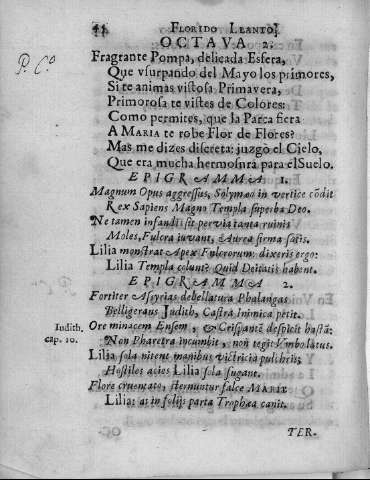 44. FLORIDO LLANTO,
OCTAVA 2.
Fragrante Pompa, delicada Esfera,
Que vsurpando del Mayo los primores,
Si te animas vistosa Primavera,
Primorosa te vistes de Colores:
Como permites, que la Parca fiera
A MARIA te robe Flor de Flores?
Mas me dizes discreta: juzgò el Cielo,
Que era mucha hermosura para el Suelo.
EPIGRAMMA 1.
Magnum Opus aggressus, Solymæo in vertice cõdit
Rex Sapiens Magno Templa superba Deo.
Ne tamen infandis sit pervia tanta ruinis
Moles, Fulcra iuvant, & Aurea firma satis.
Lilia monstrat Apex Fulcrorum: dixeris ergo:
Lilia Templa colunt? Quid Deitatis habent.
EPIGRAMMA 2.
Fortiter Assyrias debellatura Phalangas
Belligerans Judith, Castra Inimica petit.
Iudith. cap. 10.
Ore minacem Ensem, & Crispantẽ despicit hastã:
Non Pharetra incumbit, non tegit Vmbo latus.
Lilia sola nitent manibus victricia pulchris;
Hostiles acies Lilia sola fugant.
Flore cruentato, sternuntur falce MARIÆ
Lilia: at in folijs parta Trophæa canit.
TER-